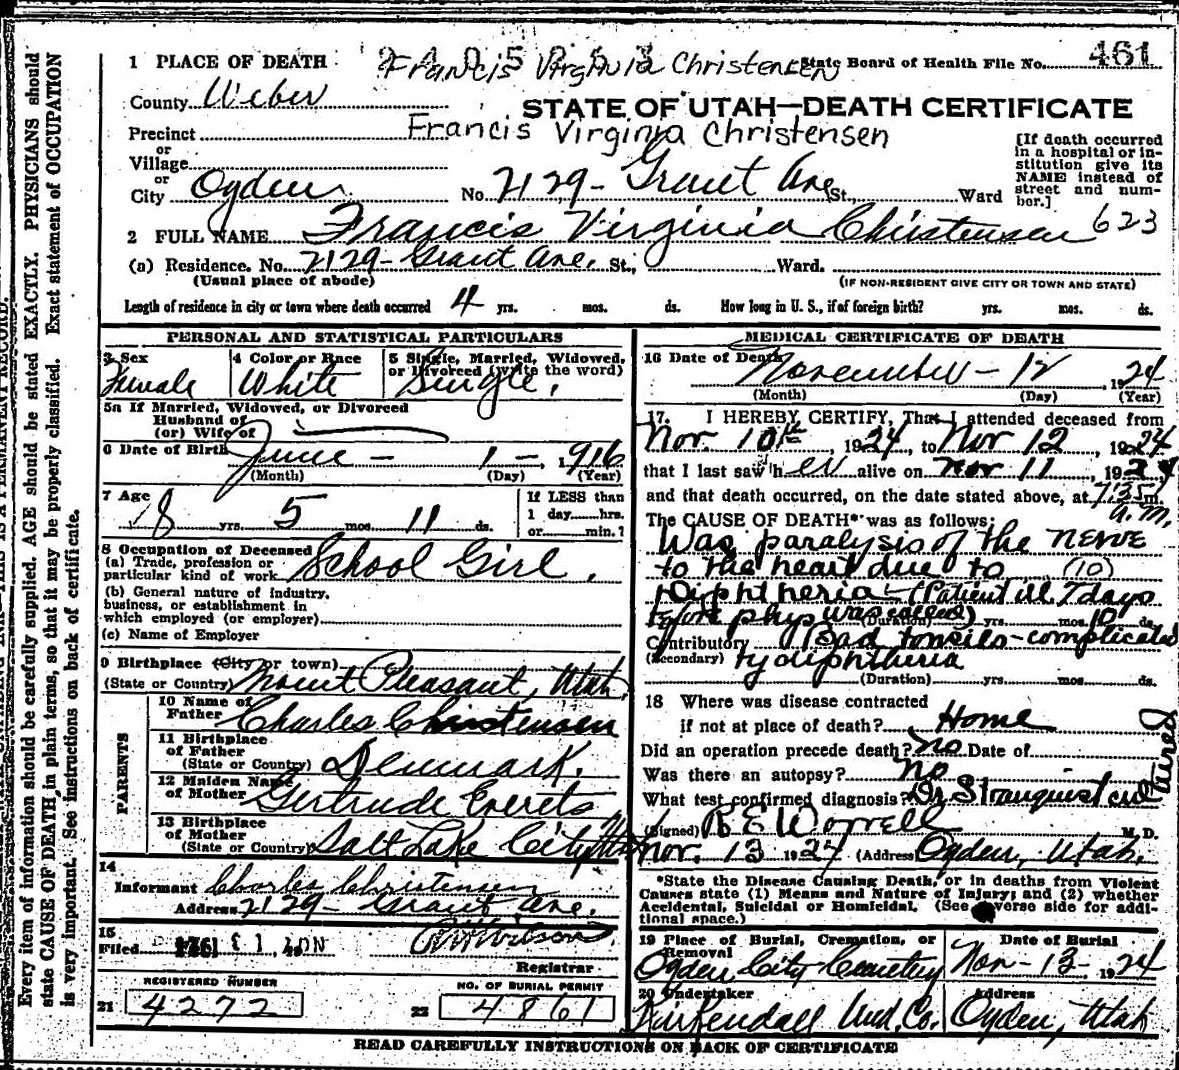 Every item of information should be carefully supplied. AGE should be stated EXACTLY. PHYSICIANS should
state CAUSE OF DEATH in plain terms, so that it may be properly classified. Exact statement of OCCUPATION
is very important. See instructions on back of certificate.
1 PLACE OF DEATH Francis Virginia Christensen State Board of Health File No. 461
County Weber
STATE OF UTAH—DEATH CERTIFICATE
Precinct Francis Virginia Christensen
or
Village
or
City Ogden No. 2129- Grant Ave St., Ward
[If death occurred
in a hospital or in-
stitution give its
NAME instead of
street and num-
ber.]
2 FULL NAME Francis Virginia Christensen 623
(a) Residence. No. 2129- Grant Ave. St., Ward.
(Usual place of abode) (IF NON-RESIDENT GIVE CITY OR TOWN AND STATE)
Length of residence in city or town where death occurred 4 yrs. mos. ds. How long in U. S., if of foreign birth? yrs. mos. ds.
PERSONAL AND STATISTICAL PARTICULARS
3 Sex Female
4 Color or Race White
5 Single, Married, Widowed,
or Divorced (write the word)
Single.
5a If Married, Widowed, or Divorced
Husband of
(or) Wife of
6 Date of Birth June - 1 -, 1916
(Month) (Day) (Year)
7 Age 8 yrs. 5 mos. 11 ds.
If LESS than
1 day hrs.
or min.?
8 Occupation of Deceased
(a) Trade, profession or
particular kind of work School Girl.
(b) General nature of industry,
business, or establishment in
which employed (or employer)
(c) Name of Employer
9 Birthplace (City or town)
(State or Country) Mount Pleasant, Utah.
PARENTS
10 Name of
Father Charles Christensen
11 Birthplace
of Father
(State or Country) Denmark.
12 Maiden Name
of Mother Gertrude Everets
13 Birthplace
of Mother
(State or Country) Salt Lake City
14
Informant Charles Christensen
Address 2129- Grant Ave.
15
Filed
Registrar
REGISTERED NUMBER
21 4272
NO. OF BURIAL PERMIT
22 4861
MEDICAL CERTIFICATE OF DEATH
16 Date of Death November - 12, 1924
(Month) (Day) (Year)
17. I HEREBY CERTIFY, That I attended deceased from
Nov. 10th, 1924, to Nov 12, 1924
that I last saw h er alive on Nov 11, 1924
and that death occurred, on the date stated above, at 7:35 m.
a.m.
The CAUSE OF DEATH* was as follows:
Was paralysis of the nerve
to the heart due to (10)
Diphtheria - (Patient ill 7 days
before phys was called) (Duration) yrs. mos. 10 ds.
Contributory Bad tonsils - complicated
(Secondary) by diphtheria
(Duration) yrs. mos. ds.
18 Where was disease contracted
if not at place of death? Home
Did an operation precede death? No Date of
Was there an autopsy? No
What test confirmed diagnosis? Dr Stranquist cultured
(Signed) R E Worrell M. D.
Nov. 13 1924 (Address) Ogden, Utah.
*State the Disease Causing Death, or in deaths from Violent
Causes state (1) Means and Nature of Injury; and (2) whether
Accidental, Suicidal or Homicidal. (See reverse side for addi-
tional space.)
19 Place of Burial, Cremation, or
Removal
Ogden City Cemetery
Date of Burial
Nov - 13 - 1924
20 Undertaker
Kirkendall Und. Co.
Address
Ogden, Utah
READ CAREFULLY INSTRUCTIONS ON BACK OF CERTIFICATE